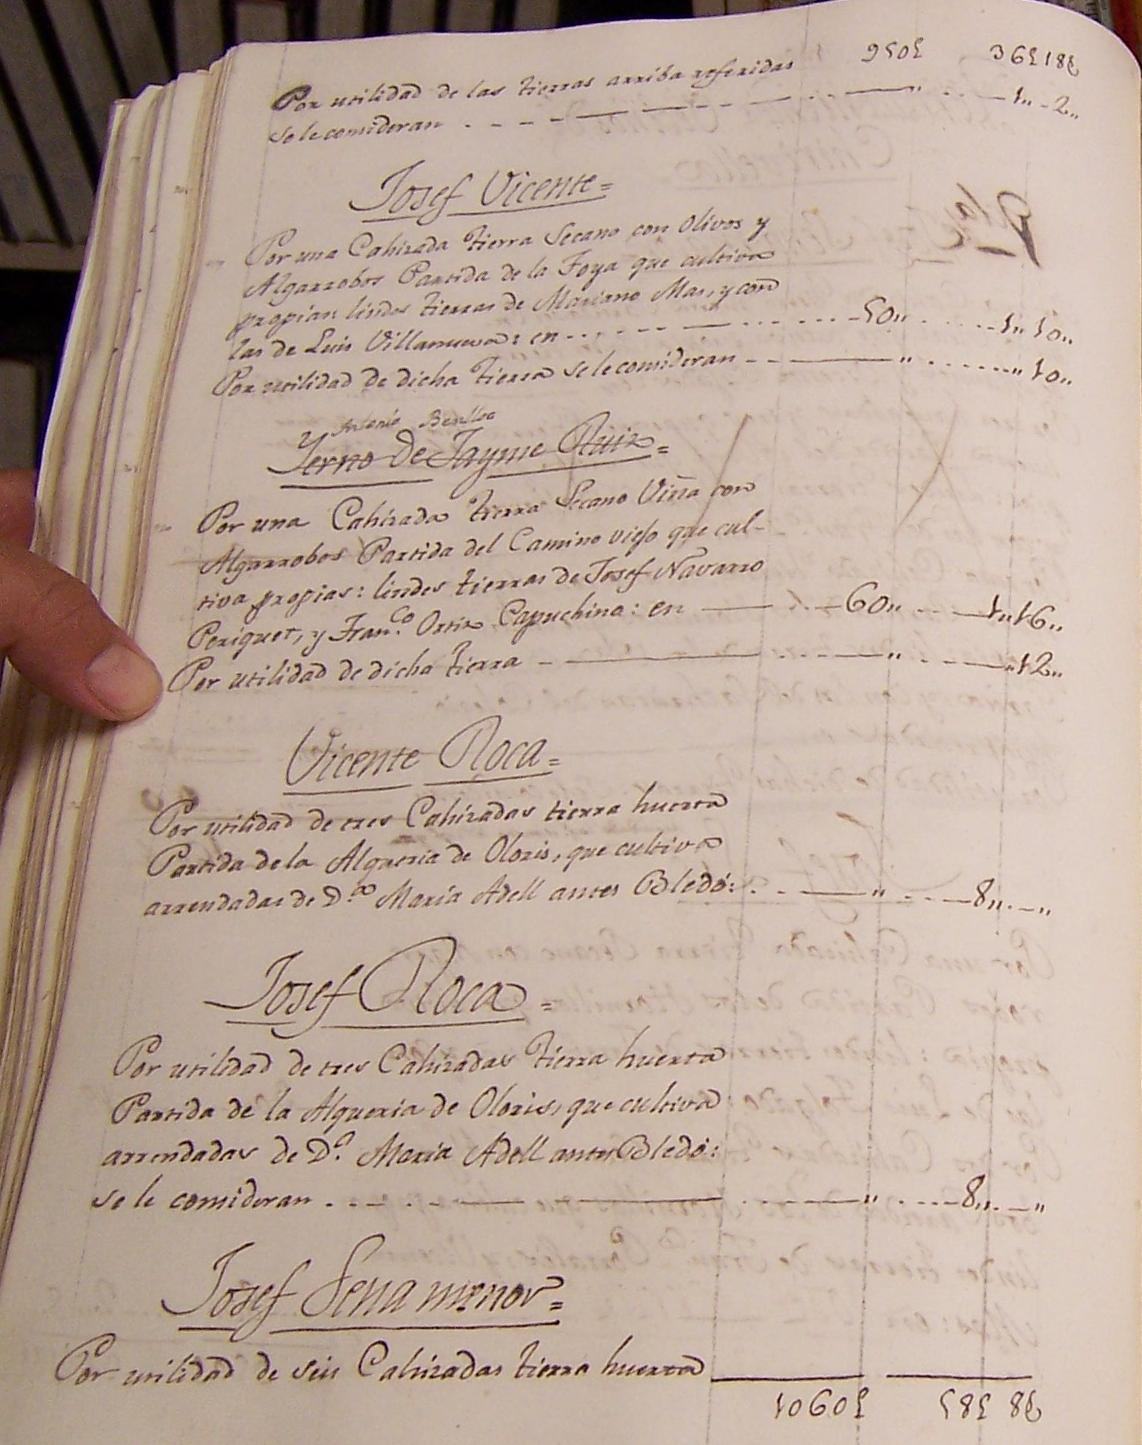 Por utilidad de las tierras arriba referidas
se le consideran . . . . „ . . . 1„ 2„
Josef Vicente=
Por una Cahizada tierra Secano con Olivos y
Algarrobos Partida de la Foya que cultiva
propian lindes tierras de Mariano Mas, y con
las de Luis Villanueva: en . . . 50„ . . . 1„ 10„
Por utilidad de dicha tierra se le consideran . . . „ . . . „ 10„
Antonio
Yerno de Jayme Ruiz=
Por una Cahizada tierra Secano Viña con
Algarrobos Partida del Camino viejo que cul-
tiva propias: lindes tierras de Josef Navarro
Periquet, y Fran.co Ortiz Capuchino: en . . . 60„ . . . 1„ 16„
Por utilidad de dicha tierra . . . „ . . . „ 12„
Vicente Roca=
Por utilidad de tres Cahizadas tierra huerta
Partida de la Alqueria de Oloris, que cultiva
arrendadas de D.a Maria Adell antes Bledó: . . . „ . . . 8„ . „
Josef Roca=
Por utilidad de tres Cahizadas tierra huerta
Partida de la Alqueria de Oloris, que cultiva
arrendadas de D.a Maria Adell antes Bledó:
se le consideran . . . „ . . . 8„ . „
Josef Sena menor=
Por utilidad de seis Cahizadas tierra huerta